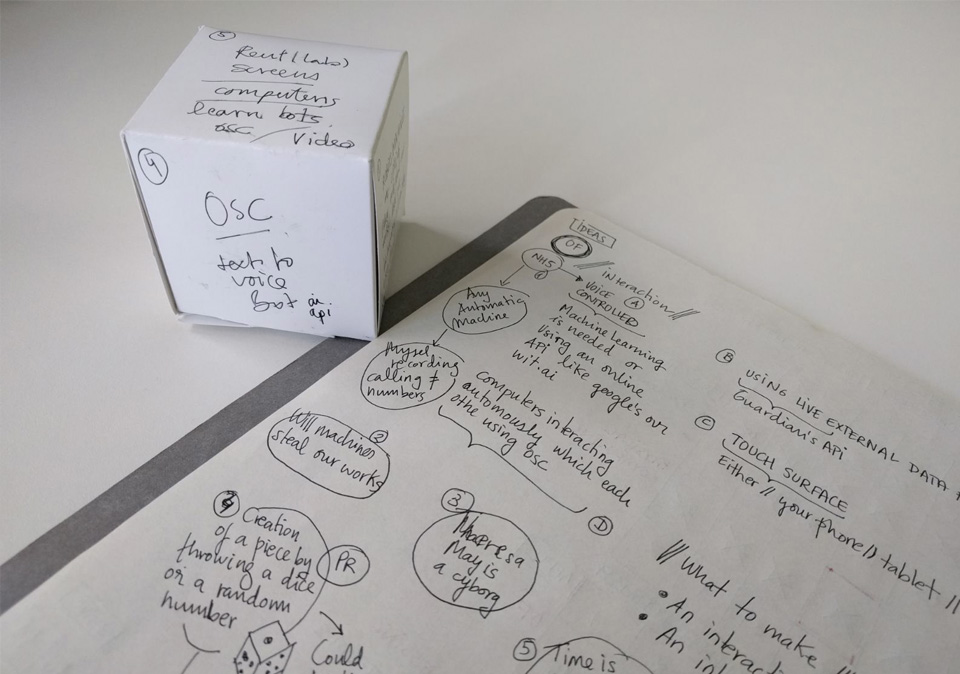 5
Rent (Lab)
screens
computers
learn bots
osc / Video
4
OSC
text to
voice
Bot
api
IDEAS
OF
// interaction //
NHS
Any
Automatic
Machine
VOICE A
CONTROLLED
Machine Learning
is needed or
Using an online
API like google's our
wit.ai
Mysel
recording
calling ≠
numbers
computers interacting
automously which each
othe using OSC
D
2
Will machines
steal our works
B
USING LIVE EXTERNAL DATA
Guardian's Api
C
TOUCH SURFACE
Either // your phone // tablet //
Creation
of a piece by
throwing a dice
or a random
number
PR
Could
3
May is
a cyborg
// What to make //
• An interacti
• An int
5
Time is